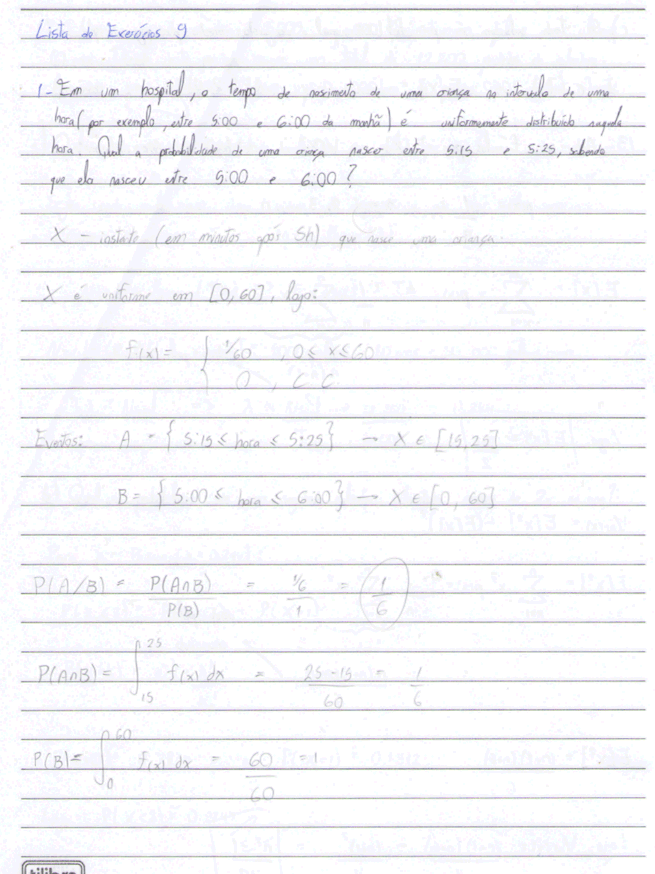 Lista de Exercícios 9
1- Em um hospital, o tempo de nascimento de uma criança no intervalo de uma
hora (por exemplo, entre 5:00 e 6:00 da manhã) é uniformemente distribuído naquela
hora. Qual a probabilidade de uma criança nascer entre 5:15 e 5:25, sabendo
que ela nasceu entre 5:00 e 6:00?
X - instante (em minutos após 5h) que nasce uma criança.
X é uniforme em [0,60], logo:
f(x) = { 1/60 , 0 ≤ x ≤ 60
0 , c.c
Eventos: A = { 5:15 ≤ hora ≤ 5:25} → X ∈ [15,25]
B = { 5:00 ≤ hora ≤ 6:00} → X ∈ [0,60]
P(A/B) = P(A∩B)/P(B) = 1/6/1 = 1/6
P(A∩B) = ∫15^25 f(x) dx = 25-15/60 = 1/6
P(B) = ∫0^60 f(x) dx = 60/60 = 1
tilibra